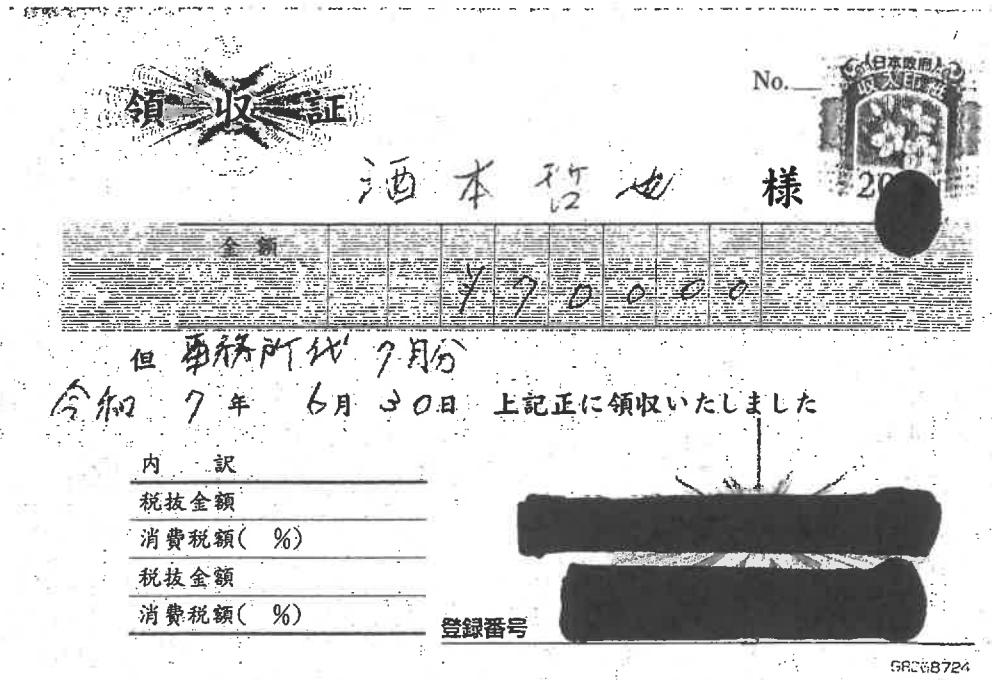 領収証
No.
日本政府
収入印紙
酒本哲也 様
金額
¥70000
但 事務所代 7月分
令和 7年 6月30日 上記正に領収いたしました
内 訳
税抜金額
消費税額( %)
税抜金額
消費税額( %)
登録番号